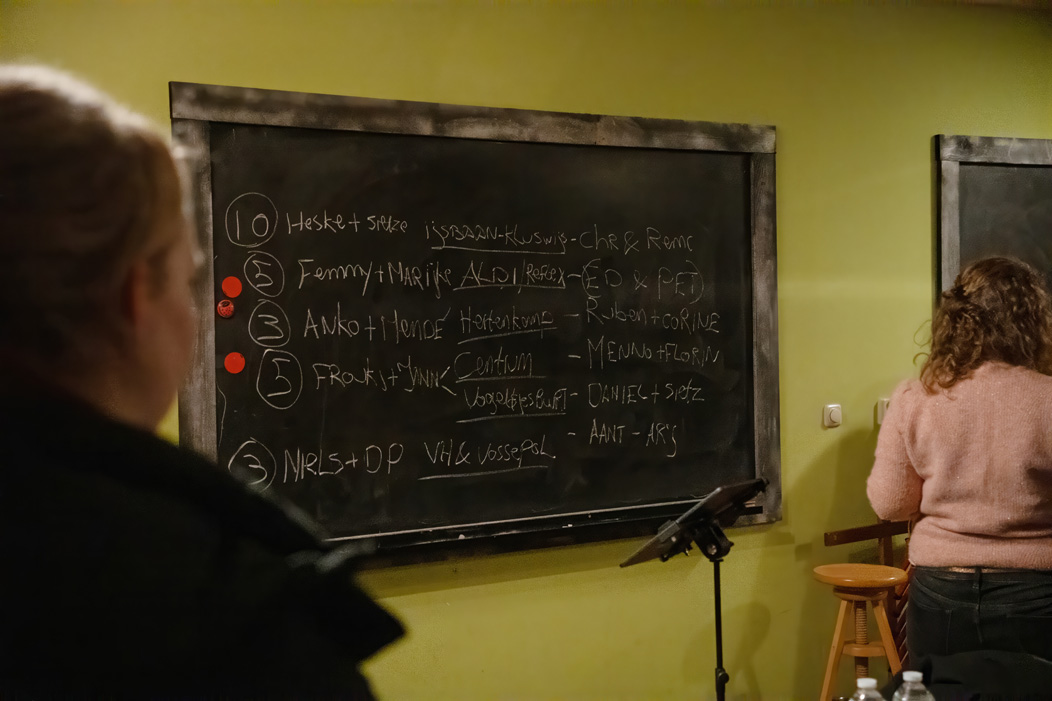 10 Heske + Sietze IJSBAAN-Kluswijs - Chr & Remc
5 Femmy + MARIJKE ALDI/Reflex - (ED & PET)
3 ANKO + MENDÉ Hertenkamp - Ruben + CORINE
5 Centrum - MENNO + FLORIN
- DANIEL + Sietz
3 NIELS + DP VH & VOSSEPOL - AANT - ARJ